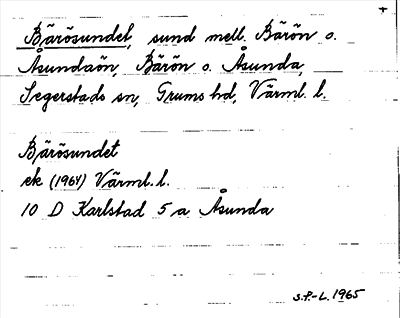 Bärösundet, sund mell. Bärön o.
Åsundaön, Bärön o. Åsunda,
Segerstads sn, Grums hd, Värml. l.
Bärösundet
ek (1964) Värml. l.
10 D Karlstad 5 a Åsunda
S.P.-L. 1965